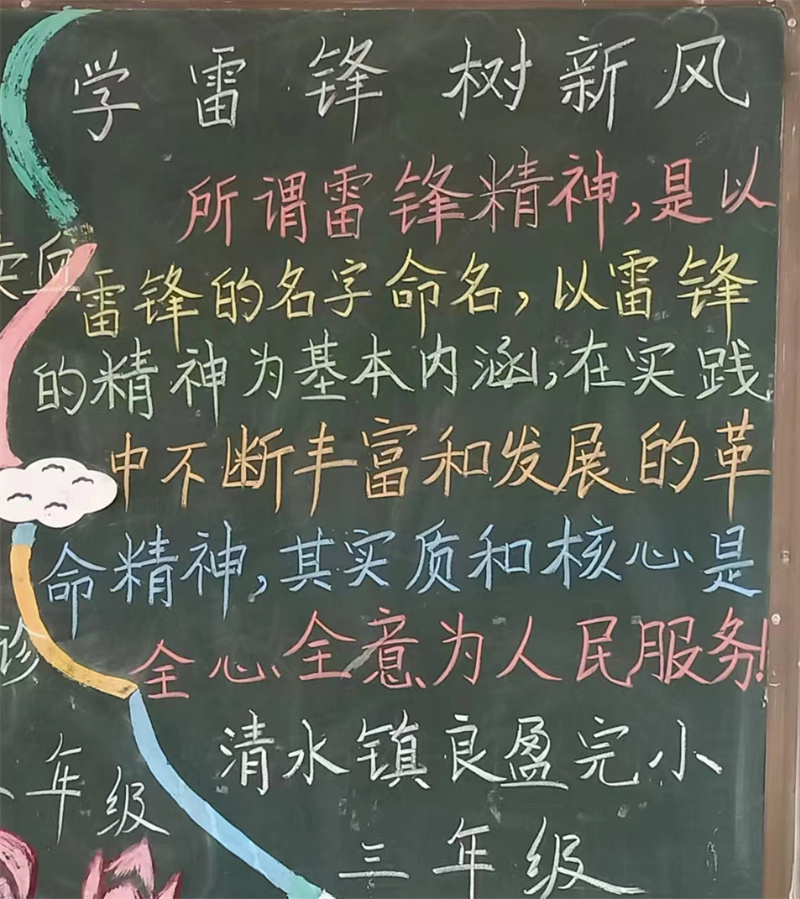 学雷锋 树新风
所谓雷锋精神,是以
雷锋的名字命名,以雷锋
的精神为基本内涵,在实践
中不断丰富和发展的革
命精神,其实质和核心是
全心全意为人民服务!
清水镇良盈完小
三年级
诊
年级